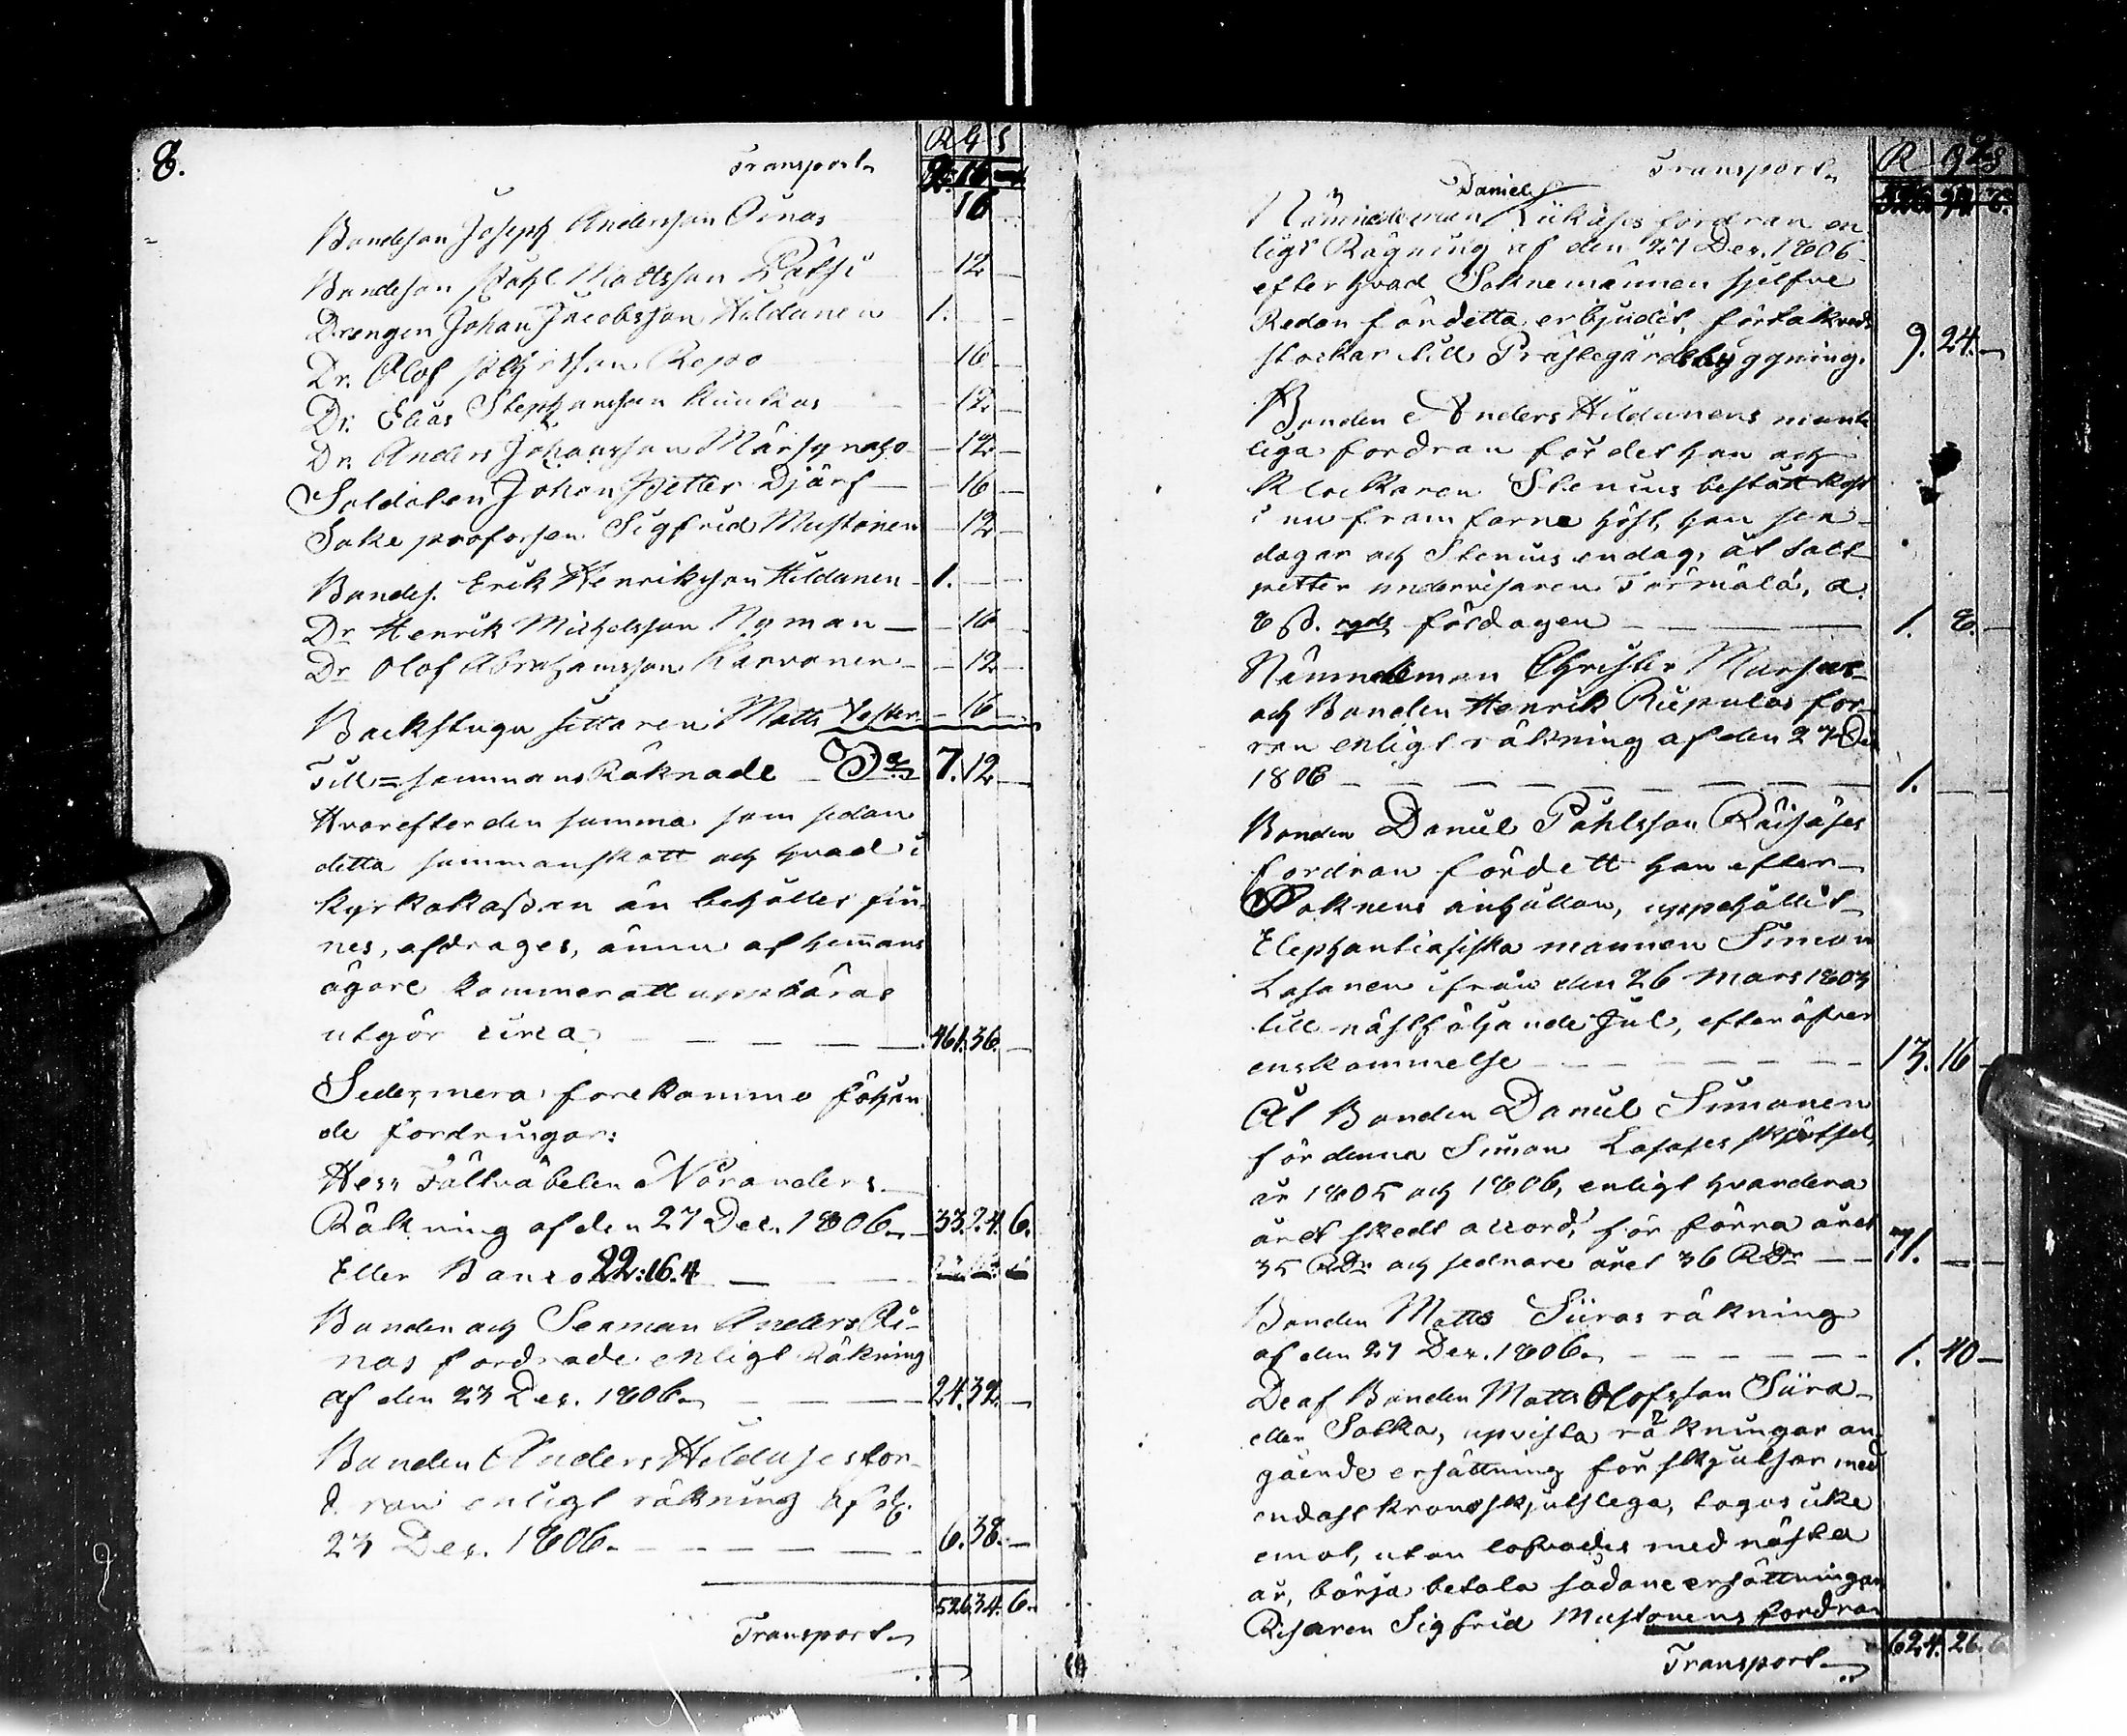 8.
R G S
Transport
Bondeson Joseph Andersson Oinas 16
Bondeson Påhl Mattsson Pätsi 12
Drengen Johan Jacobsson Hildunen 1.
Dr. Olof Repo 16
Dr. Elias Stephansson Kuukas 12
Dr. Anders Johansson 12
Soldaten Johan Petter Djärf 16
Sokne profossen Sigfrid Mustonen 12
Bondes. Erik Henriksson Hildunen 1.
Dr Henrik Michelsson Nyman 16
Dr Olof Abrahamsson Karvonen 12
Backstugu sittaren Matts 16
Till=sammans Räknade 7. 12
Hvarefter den summa som sedan
detta sammanskott och hvad i
kyrkokassan än behållet fin-
nes, afdrages, ännu af hemans
ägare kommer att uppbäras
utgör circa 461. 36.
Sedermera förekommo följan
de fordringar:
Herr Fältväbelen Noranders
Räkning af den 27 Dec. 1806. 33. 24. 6.
Eller Banco 22:16.4
Bonden och Sexman Anders Oi-
nas fordrade enligt Räkning
af den 23 Dec. 1806. 24. 32.
Bonden Anders Hilduses for-
dran enligt räkning af d.
23 Dec. 1806. 6. 38.
526. 34. 6.
Transport
R G S
Transport
Daniel
Nämndeman fordran en
ligt Räkning af den 27 Dec. 1806
efter hvad Soknemännen sjelfve
Redan för detta erbjudit, för
stockar till Prästegårdsbyggning. 9. 24.
Bonden Anders Hildunens munt
liga fordran för det han och
Klockaren Stenius bestått kost
i nu framfarne höst, han sex
dagar och Stenius en dag, åt salt
petter undervisaren Törmälä, a
8 ß. rgds för dagen 1. 8.
Nämndeman Christer
och Bonden Henrik Riepulas for
ran enligt räkning af den 27 De
1806 1.
Bonden Daniel Påhlsson Räisäses
fordran för dett han efter
Soknens anhållan, uppehållit
Elephantiasiska mannen Simon
Lasanen ifrån den 26 Mars 1803
till nästföljande Jul, efter öfver
enskommelse 13. 16
Åt Bonden Daniel Simonen
för denna Simon Lasases skötsel,
år 1805 och 1806, enligt hvardera
året skedt accord, för förra året
35 RDr och sednare året 36 RDr 71.
Bonden Matts Siiras räkning
af den 27 Dec. 1806. 1. 40
De af Bonden Matts Olofsson Siira
eller Salka, upvista räkningar an
gående ersättning för skjutsar med
endast krono skjutslega, togos icke
emot, utan lofvades med nästa
år, börja betala sådane ersättningar
Risaren Sigfrid Mustonens fordran
624. 26. 6
Transport